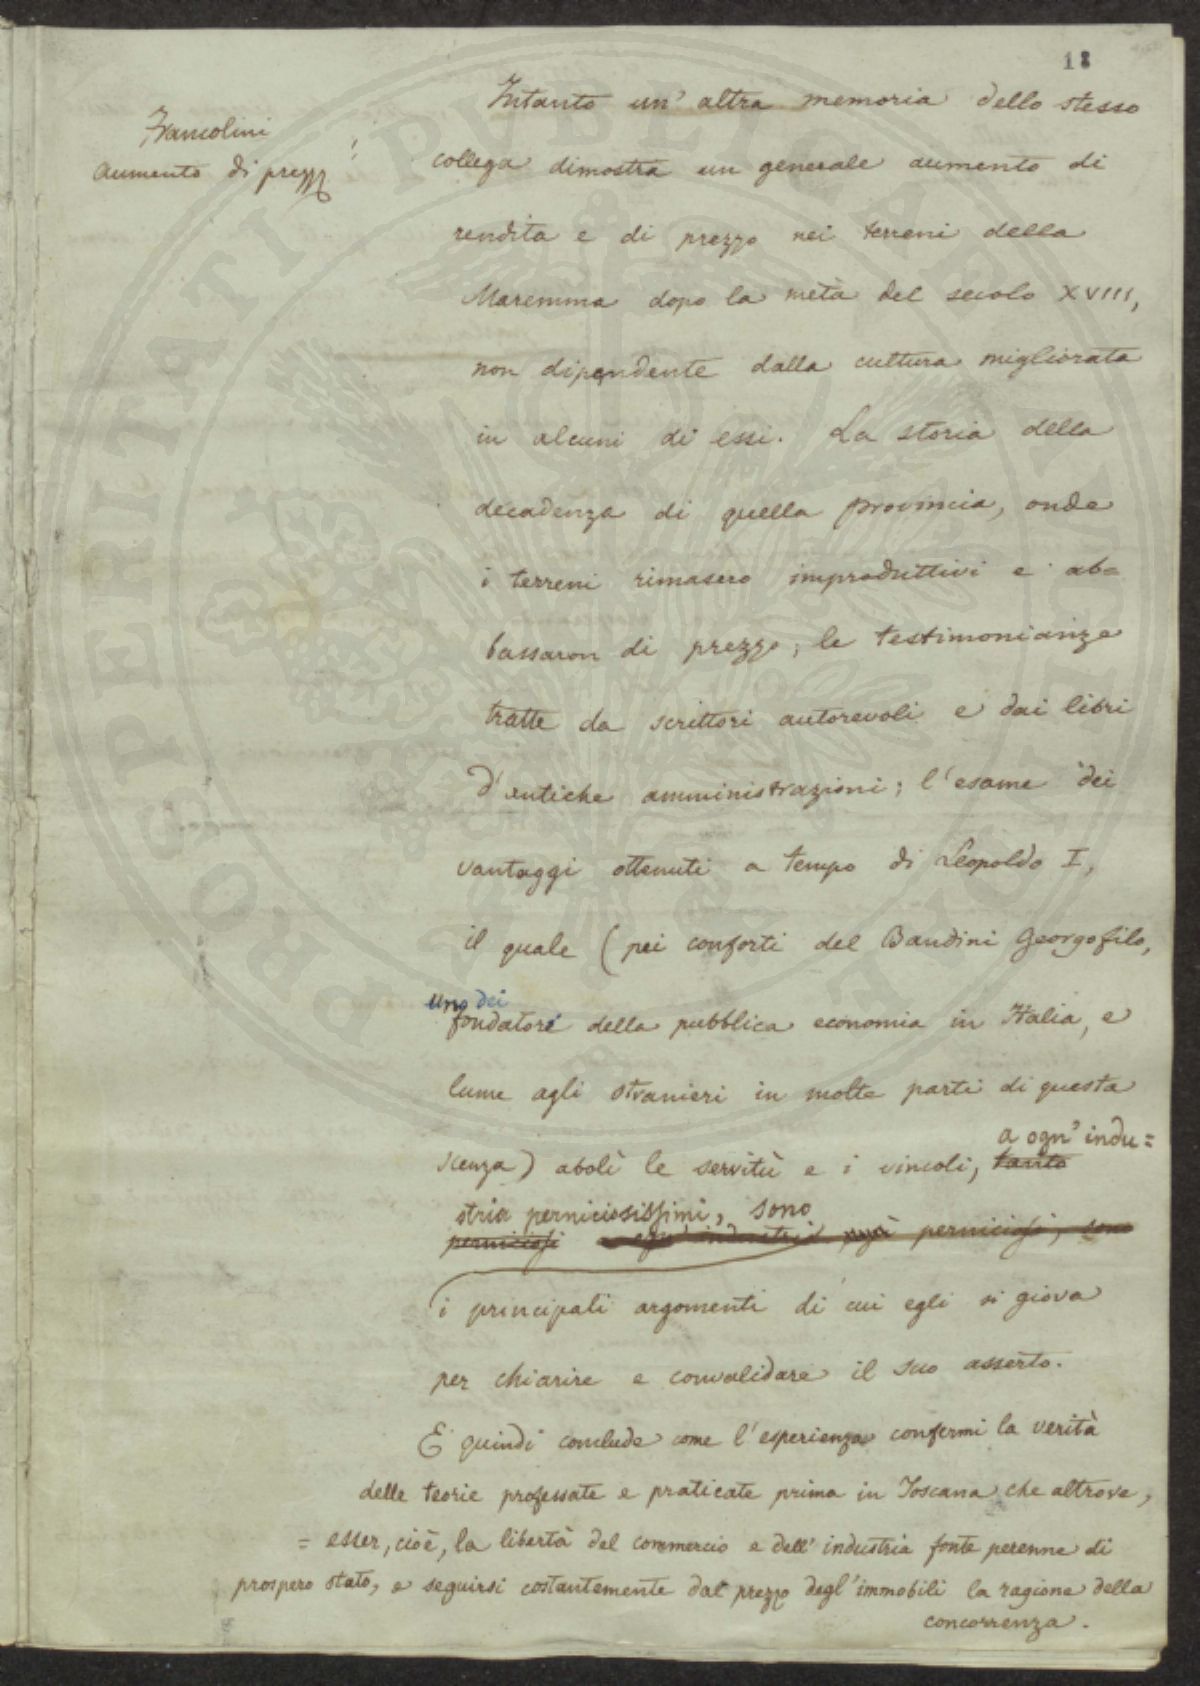 18
Francolini
aumento di prezzi
Intanto un' altra memoria dello stesso
collega dimostra un generale aumento di
rendita e di prezzo nei terreni della
Maremma dopo la metà del secolo XVIII,
non dipendente dalla cultura migliorata
in alcuni di essi. La storia della
decadenza di quella provincia, onde
i terreni rimasero improduttivi e ab=
bassaron di prezzo; le testimonianze
tratte da scrittori autorevoli e dai libri
d'antiche amministrazioni; l'esame dei
vantaggi ottenuti a tempo di Leopoldo I,
il quale (pei conforti del Bandini Georgofilo,
uno dei
fondatori della pubblica economia in Italia, e
lume agli stranieri in molte parti di questa
a ogn' indu=
scienza) abolì le servitù e i vincoli, tanto
stria perniciosissimi, sono
perniciosi a ogni industria perniciosi, sono
i principali argomenti di cui egli si giova
per chiarire e convalidare il suo asserto.
E quindi conclude come l'esperienza confermi la verità
delle teorie professate e praticate prima in Toscana che altrove,
= esser, cioè, la libertà del commercio e dell' industria fonte perenne di
prospero stato, e seguirsi costantemente dal prezzo degl'immobili la ragione della
concorrenza.
PROSPERITATI PUBLICAE AUGENDAE